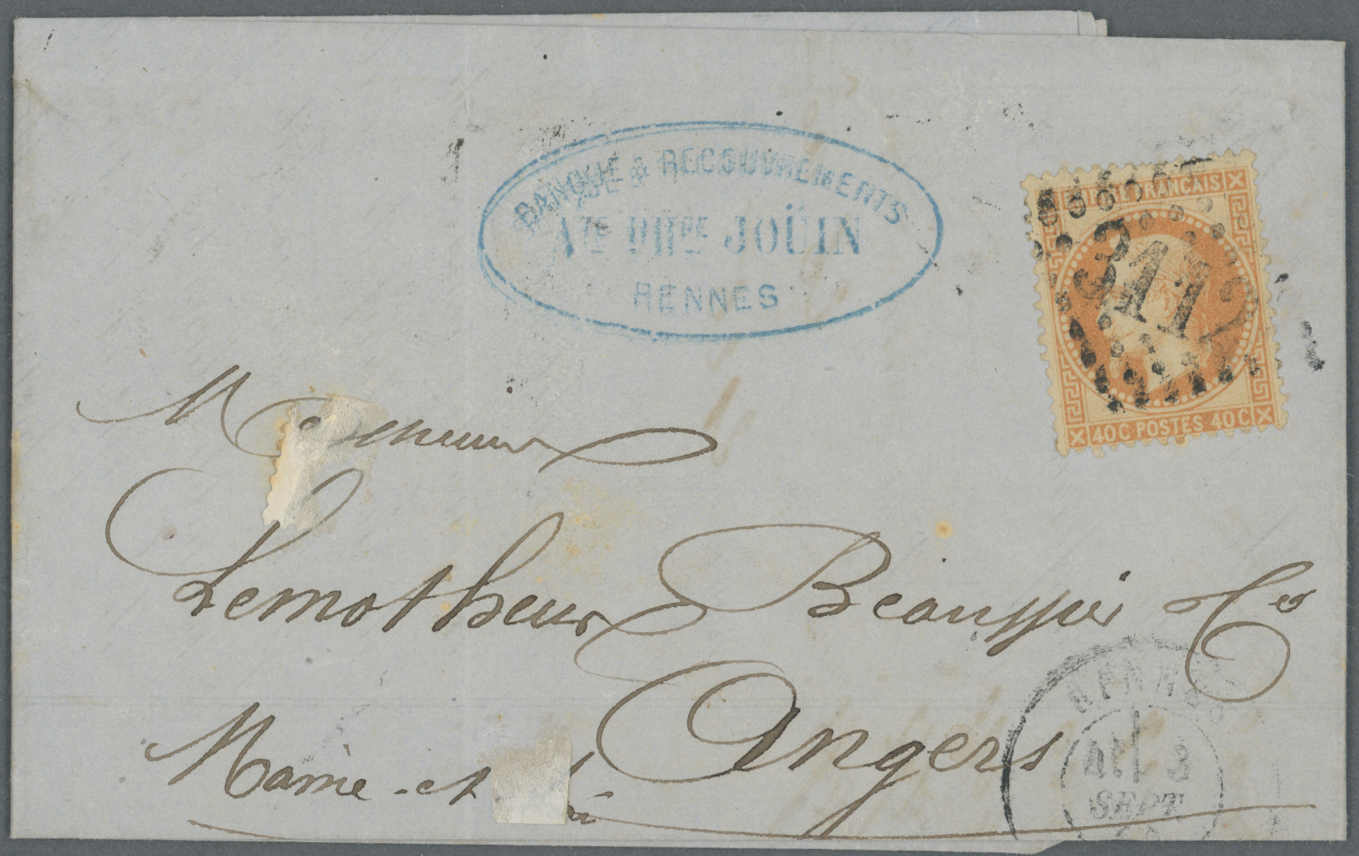 BANQUE & RECOUVREMENTS
Vve PHpe JOÜIN
RENNES
FRANÇAIS
3112
40C POSTES 40C
Monsieur
Lemotheux Beaussier & Ce
Angers
Maine-et
RENNES
3
SEPT